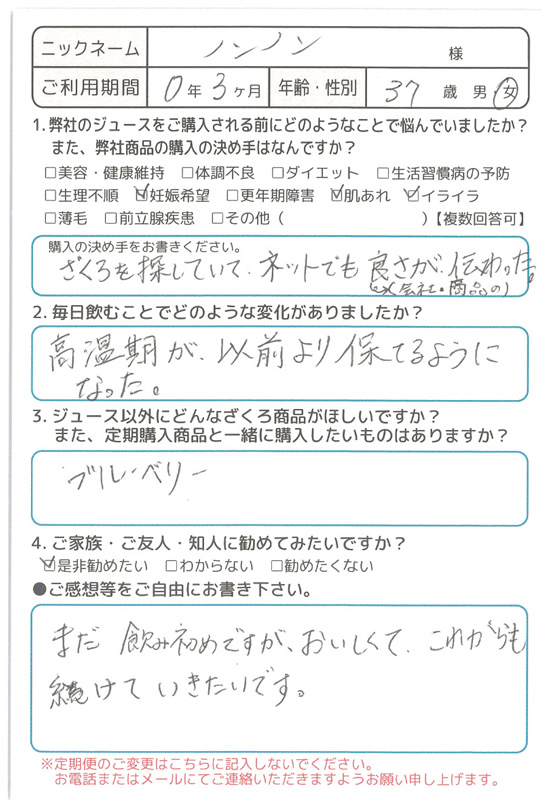 ニックネーム ノンノン 様
ご利用期間 0年3ヶ月 年齢・性別 37歳 男 女
1. 弊社のジュースをご購入される前にどのようなことで悩んでいましたか?
また、弊社商品の購入の決め手はなんですか?
□美容・健康維持 □体調不良 □ダイエット □生活習慣病の予防
□生理不順 ☑妊娠希望 □更年期障害 ☑肌あれ ☑イライラ
□薄毛 □前立腺疾患 □その他( )【複数回答可】
購入の決め手をお書きください。
ざくろを探していて、ネットでも良さが伝わった。
(会社・商品の)
2. 毎日飲むことでどのような変化がありましたか?
高温期が、以前より保てるように
なった。
3. ジュース以外にどんなざくろ商品がほしいですか?
また、定期購入商品と一緒に購入したいものはありますか?
ブルーベリー
4. ご家族・ご友人・知人に勧めてみたいですか?
☑是非勧めたい □わからない □勧めたくない
●ご感想等をご自由にお書き下さい。
まだ飲み初めですが、おいしくて、これからも
続けていきたいです。
※定期便のご変更はこちらに記入しないでください。
お電話またはメールにてご連絡いただきますようお願い申し上げます。